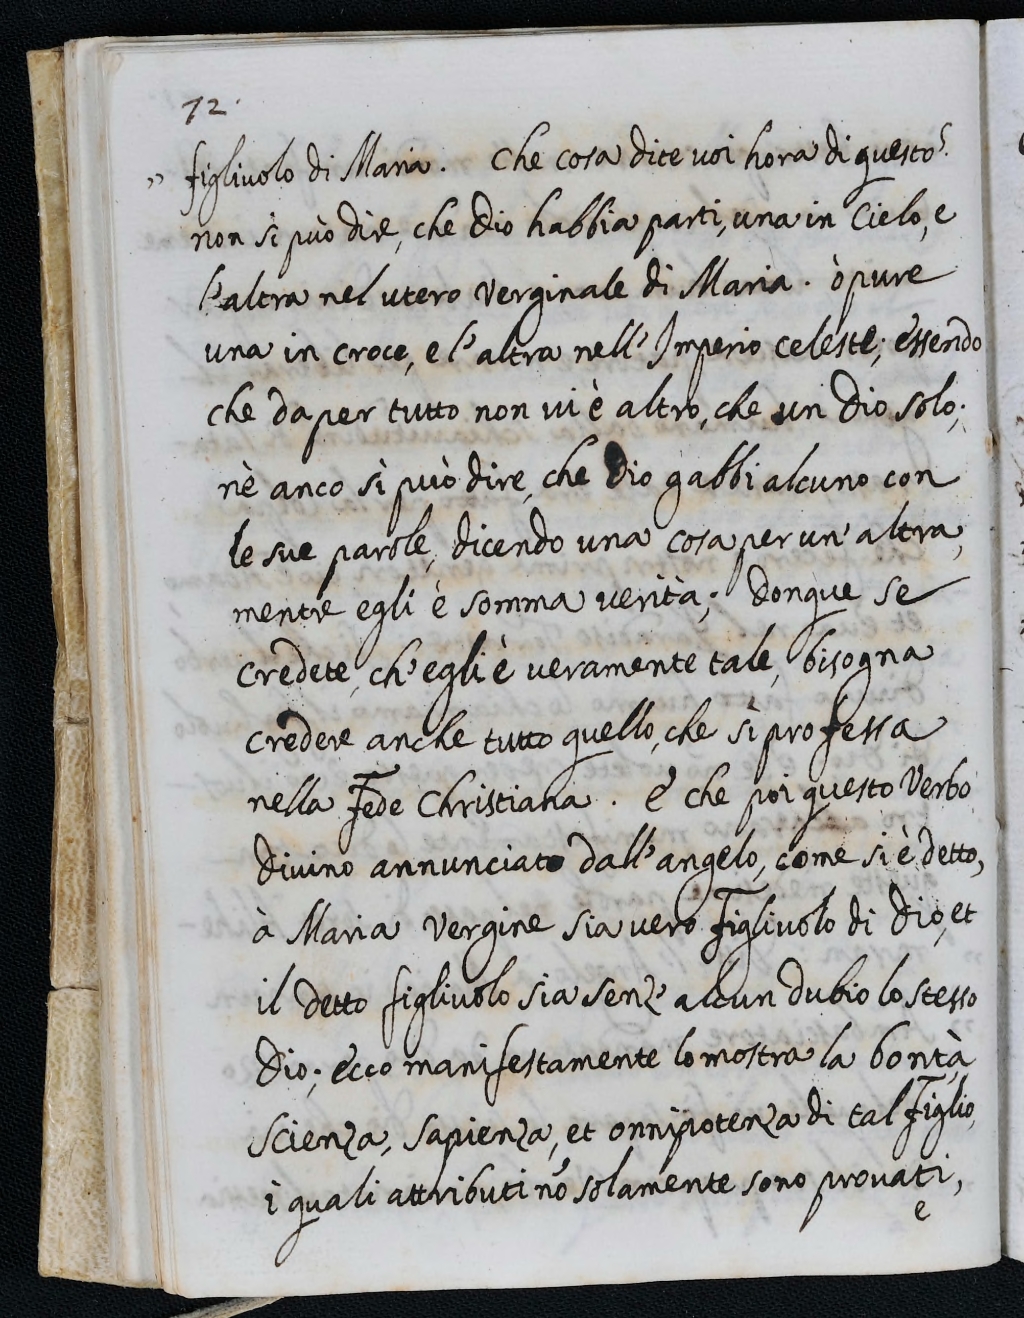 72.
„ figliuolo di Maria. Che cosa dite uoi hora di questo?
non si può dire, che Dio habbia parti, una in Cielo, e
l'altra nel utero Verginale di Maria. ò pure
una in croce, e l'altra nell'Imperio celeste; essendo
che da per tutto non ui è altro, che un Dio solo;
nè anco si può dire, che Dio gabbi alcuno con
le sue parole, dicendo una cosa per un'altra,
mentre egli è somma uerità; donque se
credete, ch'egli è ueramente tale, bisogna
credere anche tutto quello, che si professa
nella Fede Christiana. e che poi questo Verbo
Diuino annunciato dall'angelo, come si è detto,
à Maria Vergine sia uero Figliuolo di Dio, et
il detto figliuolo sia senz'alcun dubio lo stesso
Dio; ecco manifestamente lo mostra la bontà,
scienza, sapienza, et onnipotenza di tal Figlio,
i quali attributi nõ solamente sono prouati,
e